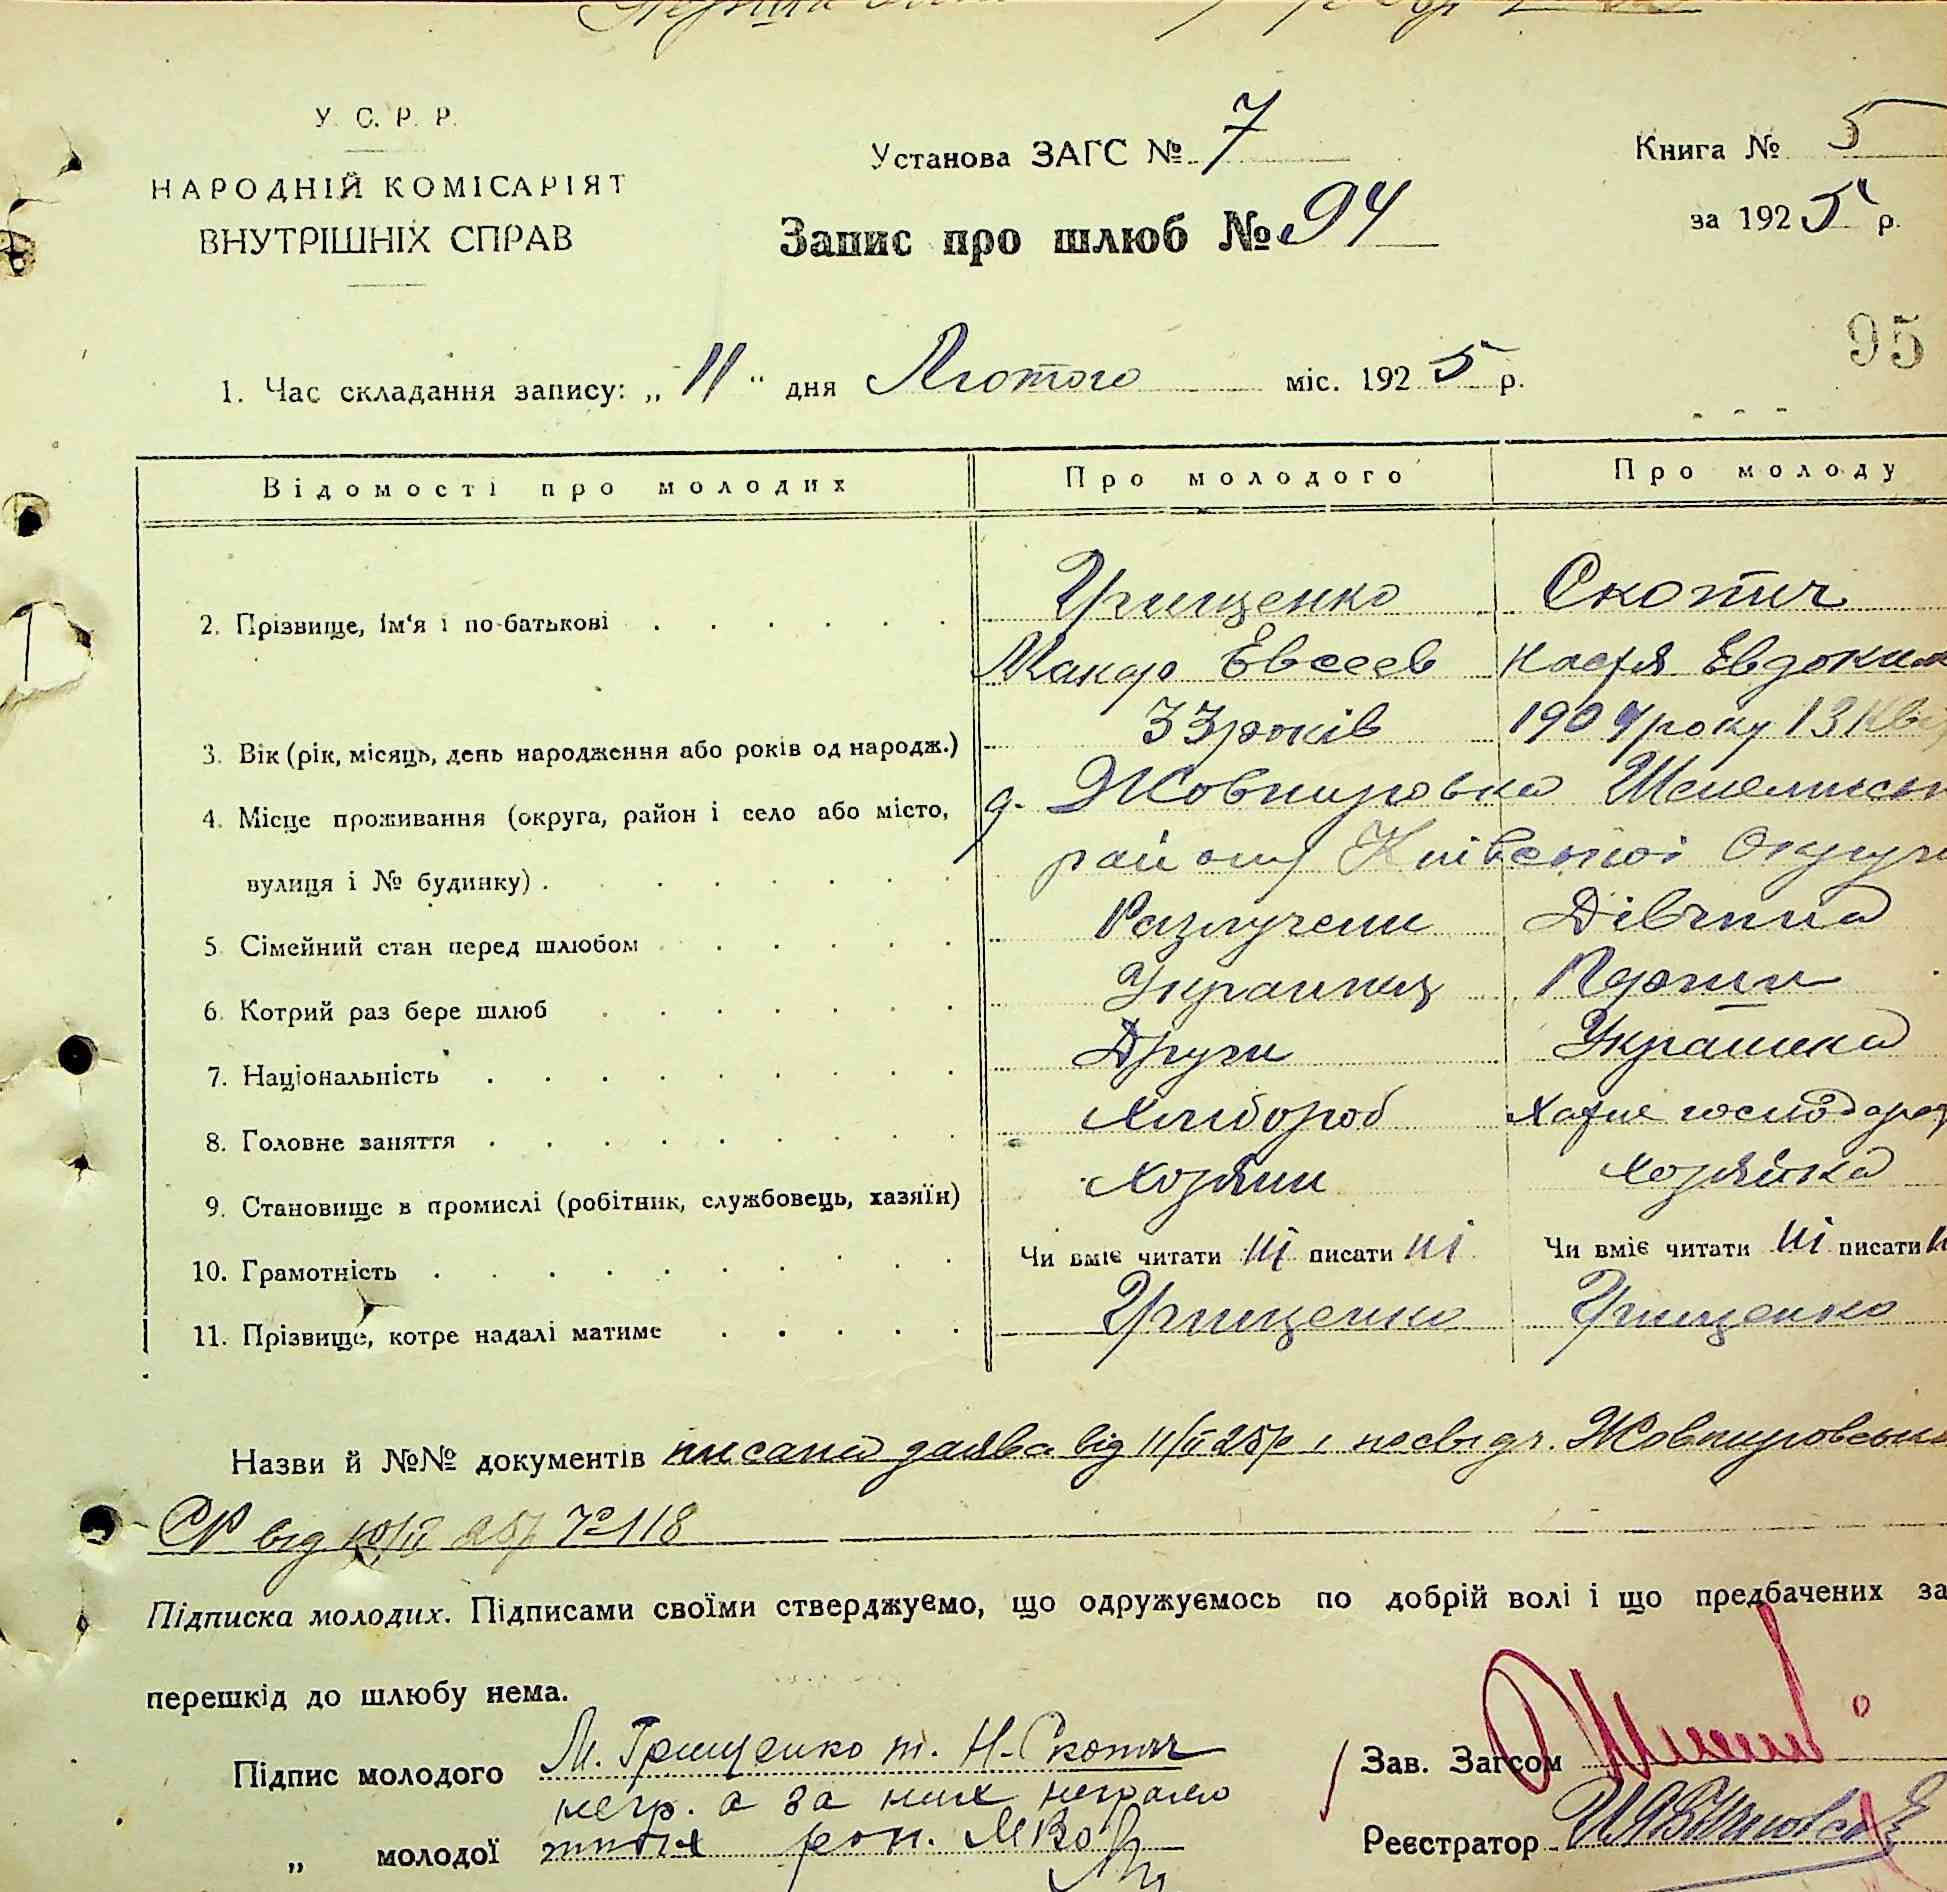 У. С. Р. Р.
НАРОДНІЙ КОМІСАРІЯТ
ВНУТРІШНІХ СПРАВ
Установа ЗАГС № 7
Запис про шлюб № 94
Книга № 5
за 1925 р.
95
1. Час складання запису: „11“ дня Лютого міс. 1925 р.
Відомості про молодих Про молодого Про молоду
2. Прізвище, ім'я і по-батькові Грищенко Скотич
Макар Евсеев Настя Евдоким
3. Вік (рік, місяць, день народження або років од народж.) 33 років 1904 року 13 Кві
4. Місце проживання (округа, район і село або місто, д. Жовтировка
вулиця і № будинку) району Київської Округи
5. Сімейний стан перед шлюбом Разлучени Дівчина
6. Котрий раз бере шлюб Украинец
7. Національність Други Украинка
8. Головне заняття Хлибороб Хатне господар
9. Становище в промислі (робітник, службовець, хазяїн) Хозяин Хозяйка
10. Грамотність Чи вміє читати ні писати ні Чи вміє читати ні писати н
11. Прізвище, котре надалі матиме Грищенко Грищенко
Назви й №№ документів писана заява від 11/II 25 р і посвідч.
СР від 10/II 25 р № 118
Підписка молодих. Підписами своїми стверджуємо, що одружуємось по добрій волі і що предбачених за
перешкід до шлюбу нема.
Підпис молодого М. Грищенко т. Н. Скотич
негр. а за них неграмо
„ молодої тних роп.
Зав. Загсом
Реєстратор